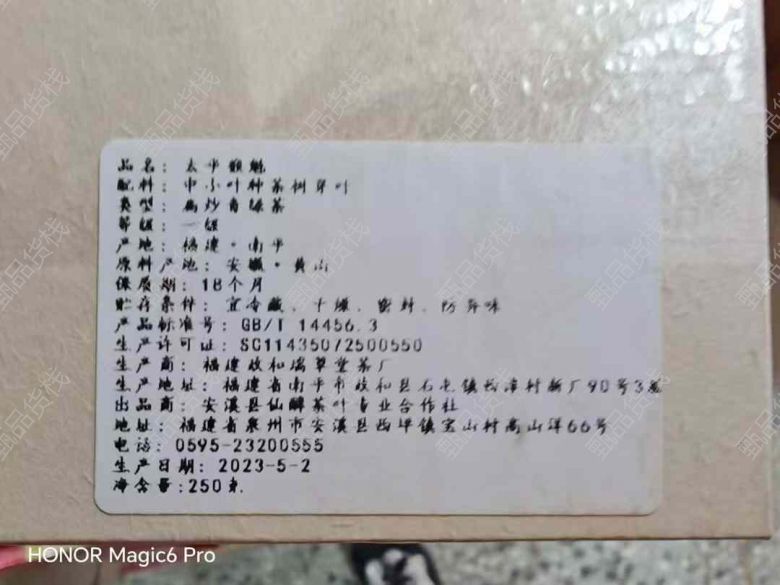 品名：太平猴魁
配料：中小叶种茶树芽叶
类型：扁炒青绿茶
等级：一级
产地：福建·南平
原料产地：安徽·黄山
保质期：18个月
贮存条件：宜冷藏、干燥、密封、防异味
产品标准号：GB/T 14456.3
生产许可证：SC11435072500550
生产商：福建政和瑞翠堂茶厂
生产地址：福建省南平市政和县石屯镇长津村新厂90号3层
出品商：安溪县仙醇茶叶专业合作社
地址：福建省泉州市安溪县西坪镇宝山村高山洋66号
电话：0595-23200555
生产日期：2023-5-2
净含量：250克
HONOR Magic6 Pro
甄品货栈